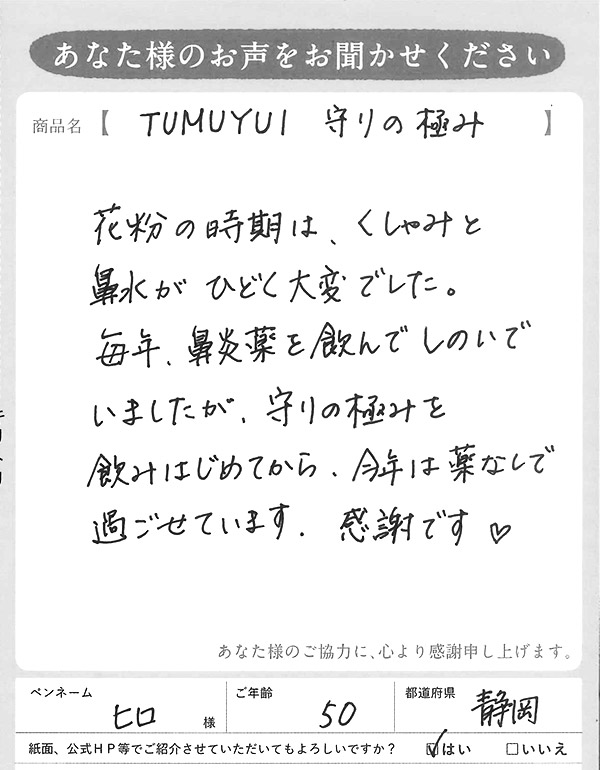 あなた様のお声をお聞かせください
商品名【 TUMUYUI 守りの極み 】
花粉の時期は、くしゃみと
鼻水が ひどく大変でした。
毎年、鼻炎薬を飲んでしのいで
いましたが、守りの極みを
飲みはじめてから、今年は薬なしで
過ごせています. 感謝です♡
あなた様のご協力に、心より感謝申し上げます。
ペンネーム ヒロ 様 ご年齢 50 都道府県 静岡
紙面、公式HP等でご紹介させていただいてもよろしいですか? ☑はい □いいえ